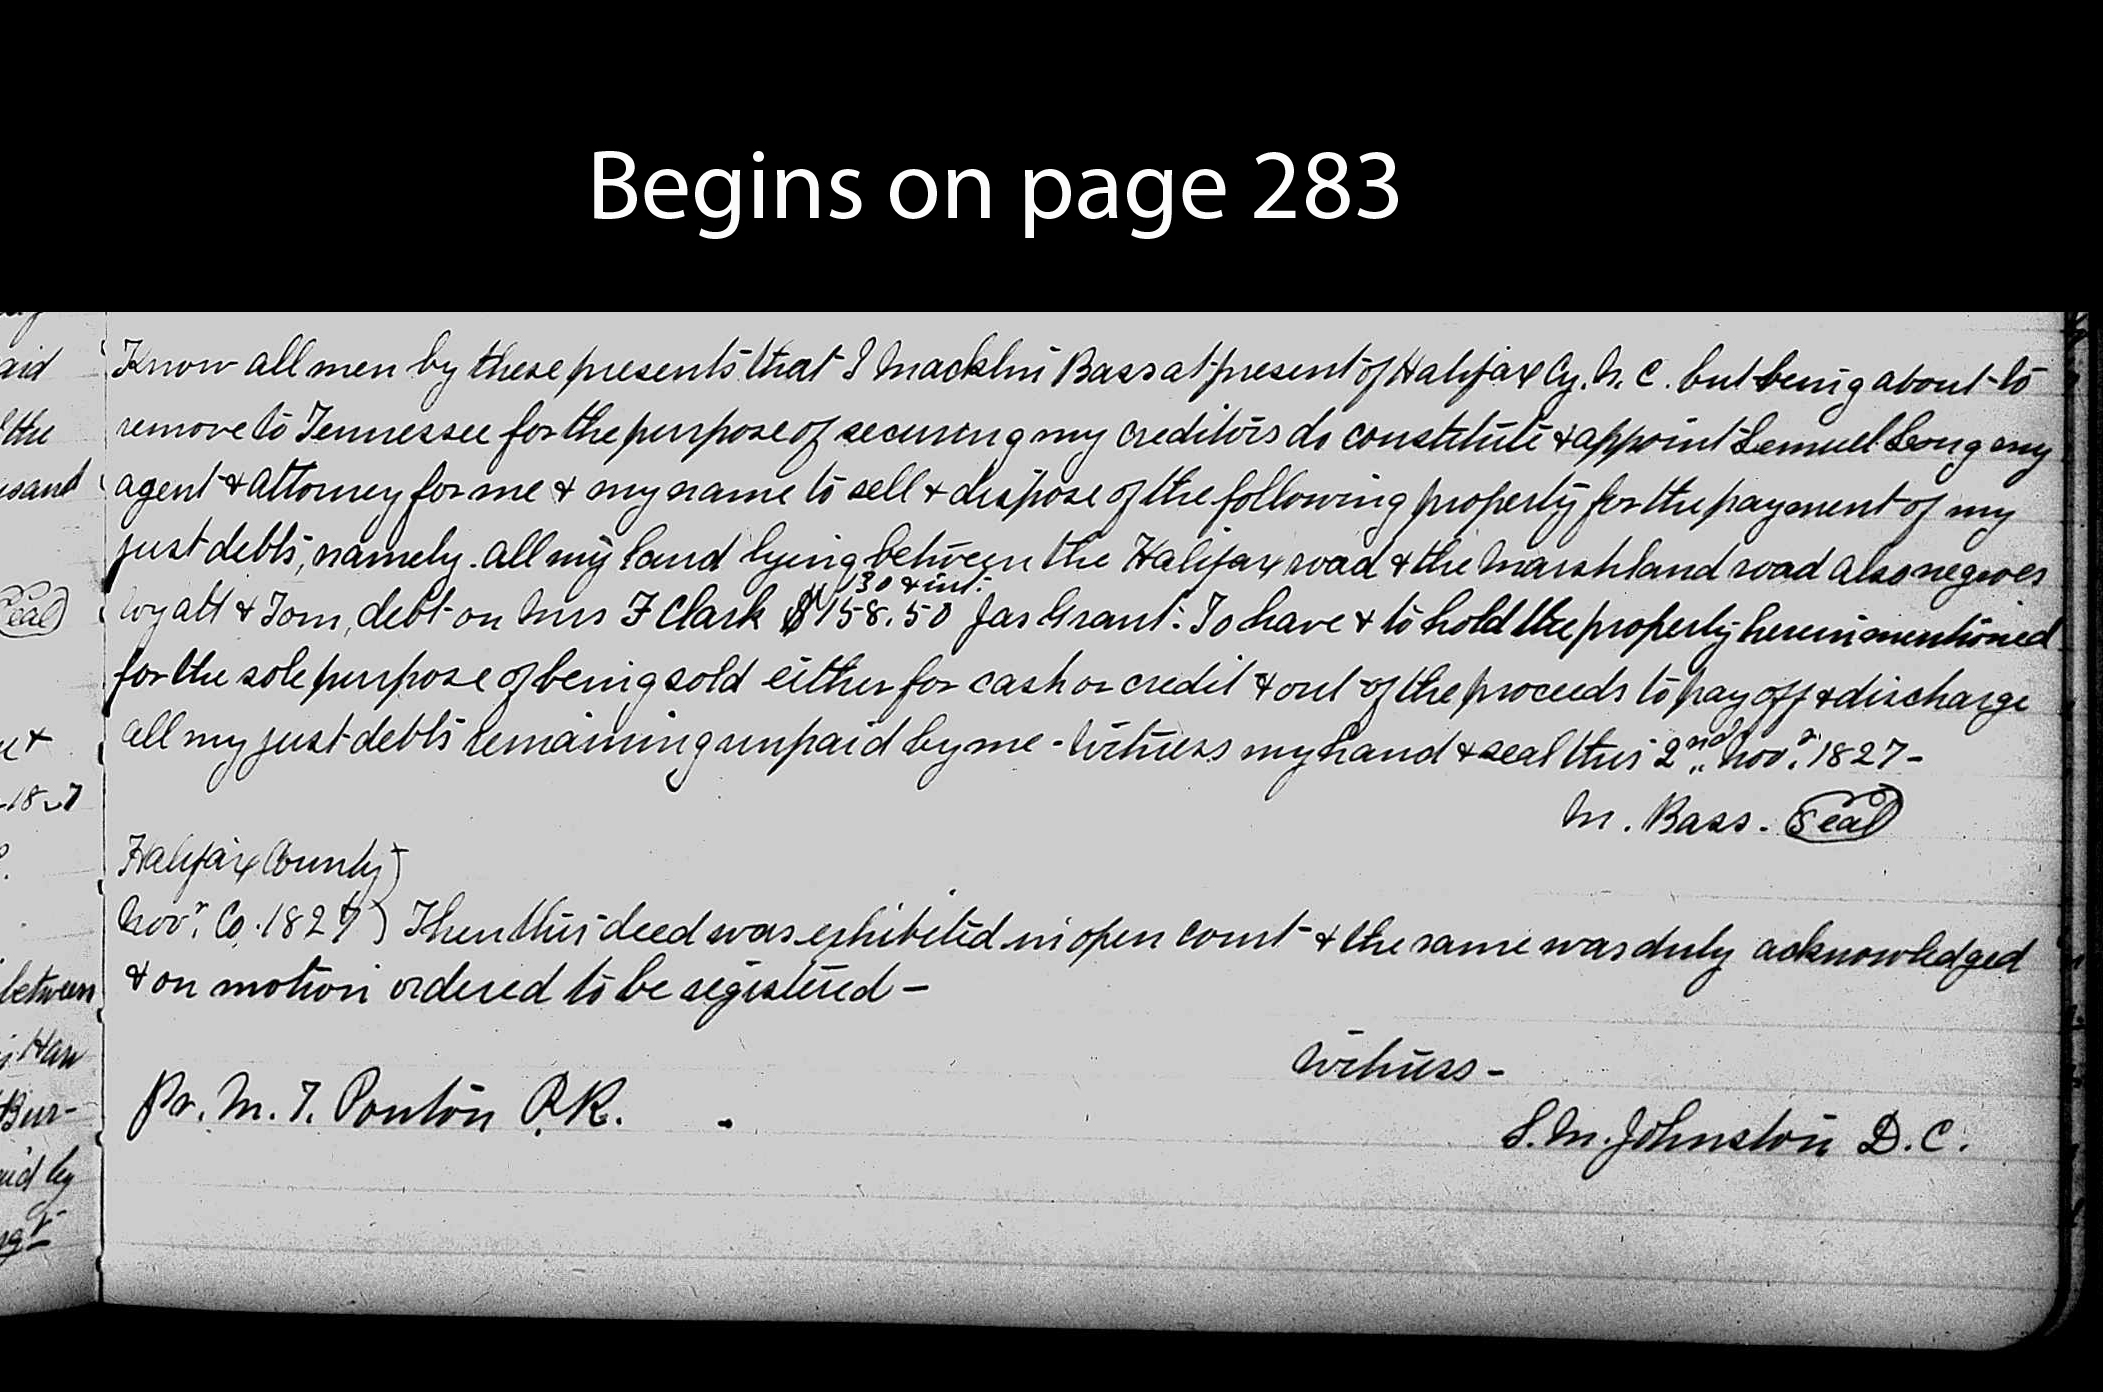 Begins on page 283
Know all men by these presents that I Macklin Bass at present of Halifax Cy. N. C. but being about to
remove to Tennessee for the purpose of securing my creditors do constitute & appoint Lemuel Long my
agent & attorney for me & my name to sell & dispose of the following property for the payment of my
just debts, namely. all my land lying between the Halifax road & the Marshland road also negroes
130 & int.
Wyatt & Tom, debt on Mrs F Clark $158.50 Jas Grant: To have & to hold the property herein mentioned
for the sole purpose of being sold either for cash or credit & out of the proceeds to pay off & discharge
all my just debts remaining unpaid by me - Witness my hand & seal this 2nd Novr. 1827 -
M. Bass. Seal
Halifax County)
Novr. Co. 1827) Then this deed was exhibited in open court & the same was duly acknowledged
& on motion ordered to be registered -
Witness -
Pr. M. T. Ponton P.R.
S. M. Johnston D.C.
aid
the
usand
Seal
1827
between
Har
Bur-
aid by